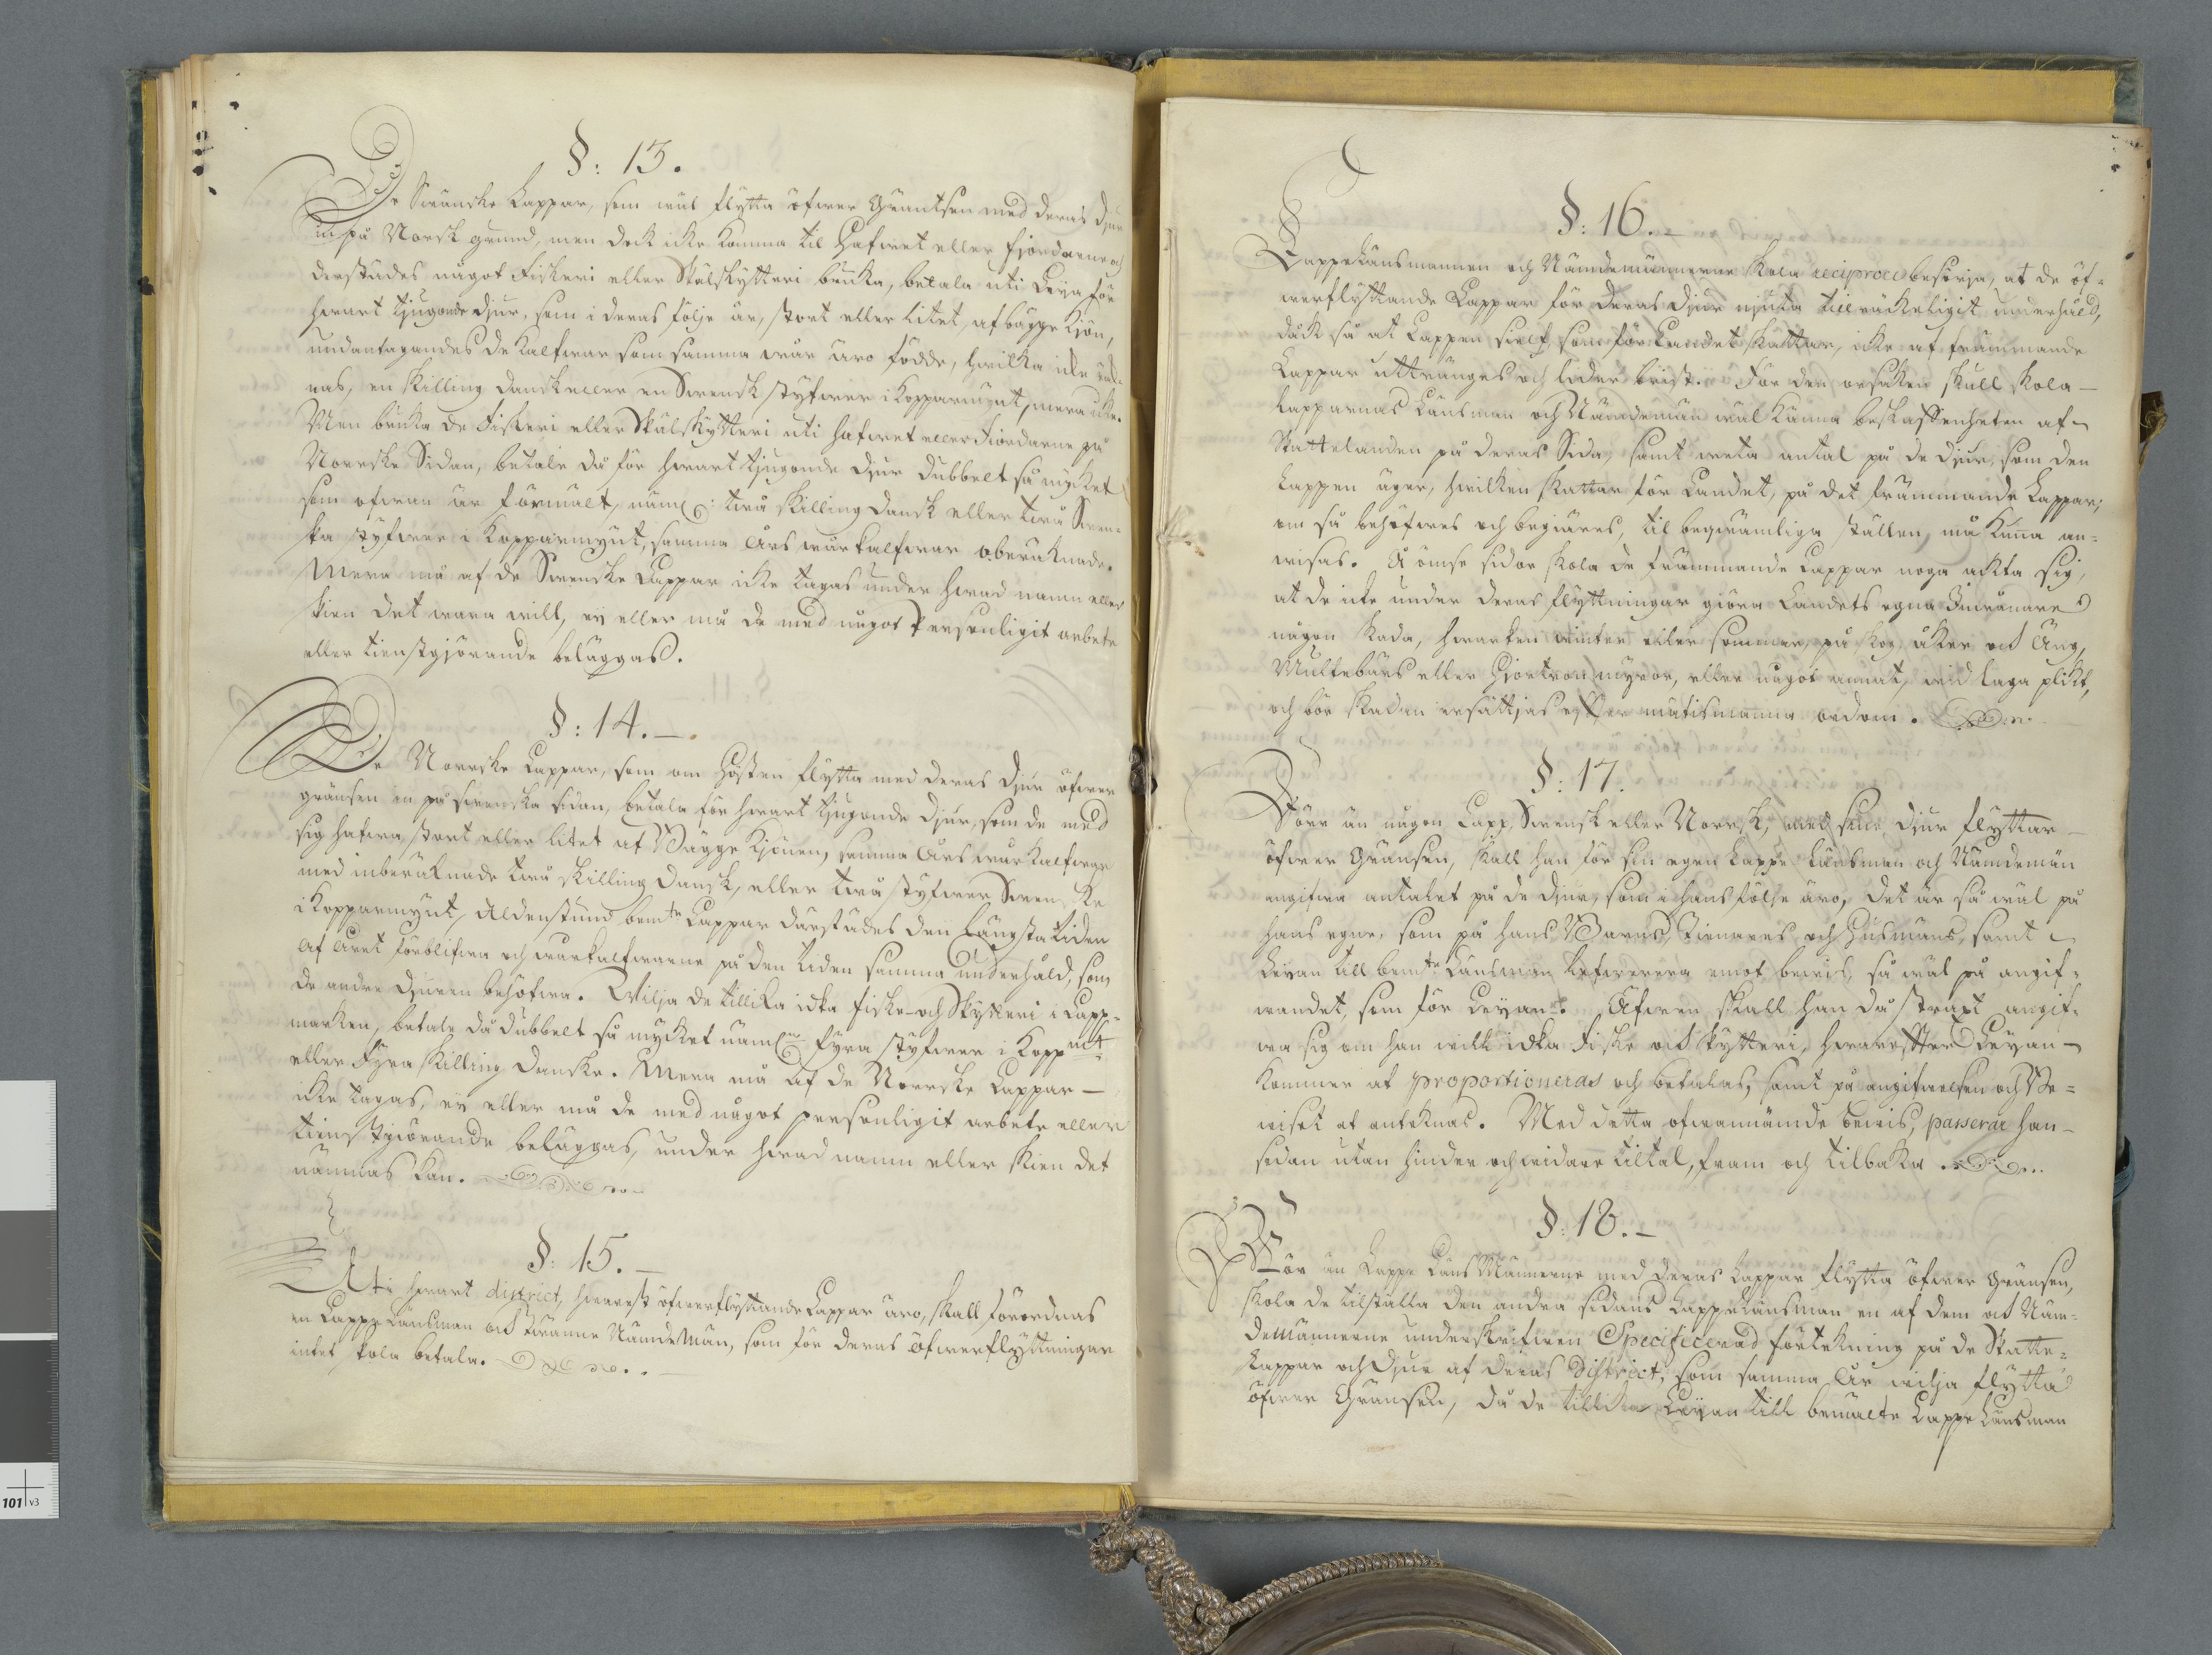 §: 13.
De Swenske Lappar, som wäl flytta öfwer Gräntsen med deras djur
in på Norsk grund, men dock icke komma til Hafwet eller fjordarne och
derstädes något Fiskeri eller Skälskytteri bruka, betala uti Leya för
hwart tjugonde djur, som i deras följe är, stort eller litet, af bägge Kjön,
undantagandes de Kalfwar som samma wår äro födde, hwilka icke räk-
nas, en skilling dansk eller en Swensk styfwer i Kopparmynt, mera icke.
Men bruka de Fiskeri eller Skälskytteri uti hafwet eller Fiordarne på
Norrske Sidan, betale då för hwart tjugonde djur dubbelt så mycket
som ofwan är förmält, näml: twå skilling dansk eller twå Swen-
ska styfwer i Kopparmynt, samma Års wårkalfwar oberäknade.
Mera må af de Swenske Lappar icke tagas under hwad namn eller
skien det wara will, ey eller må de med något Personligit arbete
eller tienstgjörande beläggas.
§: 14.
De Norrske Lappar, som om Hösten flytta med deras djur öfwer
gränsen in på swenska sidan, betala för hwart tjugonde djur, som de med
sig hafwa, stort eller litet af Bägge Kjönen, samma Års wårkalfwar
med inberäknade twå skilling dansk, eller twå styfwer Swenske
i Kopparmynt, Aldenstund bemte Lappar därstädes den längsta tiden
af Året förblifwa och wårkalfwarne på den tiden samma underhåld, som
de andre djuren behöfwa. Wilja de tillika idka fiske- och Skytteri i Lapp-
marken, betale då dubbelt så mycket näml fyra styfwer i Koppmt
eller Fyra skilling danske. Mera må af de Norrske Lappar
icke tagas, ey eller må de med något personligit arbete eller
tienstgiörande beläggas, under hwad namn eller skien det
nämnas kan.
§: 15.
Uti hwart district, hwarest öfwerflyttande Lappar äro, skall förordnas
en Lappe Länsman och twänne Nämdemän, som för deras öfwerflyttningar
intet skola betala.
§: 16.
Lappelänsmannen och Nämdemännerne skola reciproce besörja, at de öf-
werflyttande Lappar för deras djur njuta tillräckeligit underhåld,
dåck så at Lappen sielf som för Landet skattar, icke af främmande
Lappar uttränges och lider brist. För den orsaken skull skola
Lapparnas Länsman och Nämdemän wäl känna beskaffenheten af
Skattelanden på deras Sida, samt weta antal på de djur, som den
Lappen äger, hwilken skattar för Landet, på det främmande Lappar,
om så behöfwes och begiäres, til beqwämliga ställen, må kunna an-
wisas. Å ömse sidor skola de främmande Lappar noga ackta sig,
at de icke under deras flyttningar giöra Landets egna Inwånare
någon skada, hwarken winter eller sommar, på skog, åker och Äng,
Multebärs eller Hjortron myror, eller något annat, wid laga plikt,
och bör skadan ersättjas efter mätismanna ordom.
§: 17.
Förr än någon Lapp, Swensk eller Norrsk, med sine djur flyttar
öfwer Gränsen, skall han för sin egen Lappe länsman och Nämdemän
angifwa antalet på de djur, som i hans följe äro, det är så wäl på
hans egne, som på hans Barns, Tienares och Husmäns, samt
Leyan till bemte Länsman lefwerera emot bewis, så wäl på angif-
wandet, som för Leyan. Äfwen skall han då straxt angif-
wa sig om han will idka Fiske och skytteri, hwarefter Leyan
kommer at proportioneras och betalas, samt på angifwelsen och Be-
wiset at anteknas. Med detta ofwannämde bewis, passerar han
sedan utan hinder och widare tiltal, fram och tilbaka.
§: 18.
Förr än Lappe Läns Männerne med deras Lappar flytta öfwer Gränsen,
skola de tilställa den andra sidans Lappelänsman en af dem och Näm-
demännerne underskrifwen Specificerad förtekning på de Skatte-
Lappar och djur af deras District, som samma År wilja flytta
öfwer Gränsen, då de tillika Leyan till bemälte Lappe Länsman
101 v3